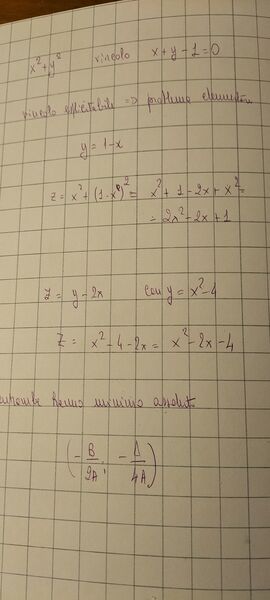 x²+y² vincolo x+y-1=0
vincolo esplicitabile => problema elementare
y=1-x
z = x²+(1-x)² = x²+1-2x+x² =
= 2x²-2x+1
z = y-2x con y = x²-4
z = x²-4-2x = x²-2x-4
entrambe hanno minimo assoluto
(-B/2A, -Δ/4A)